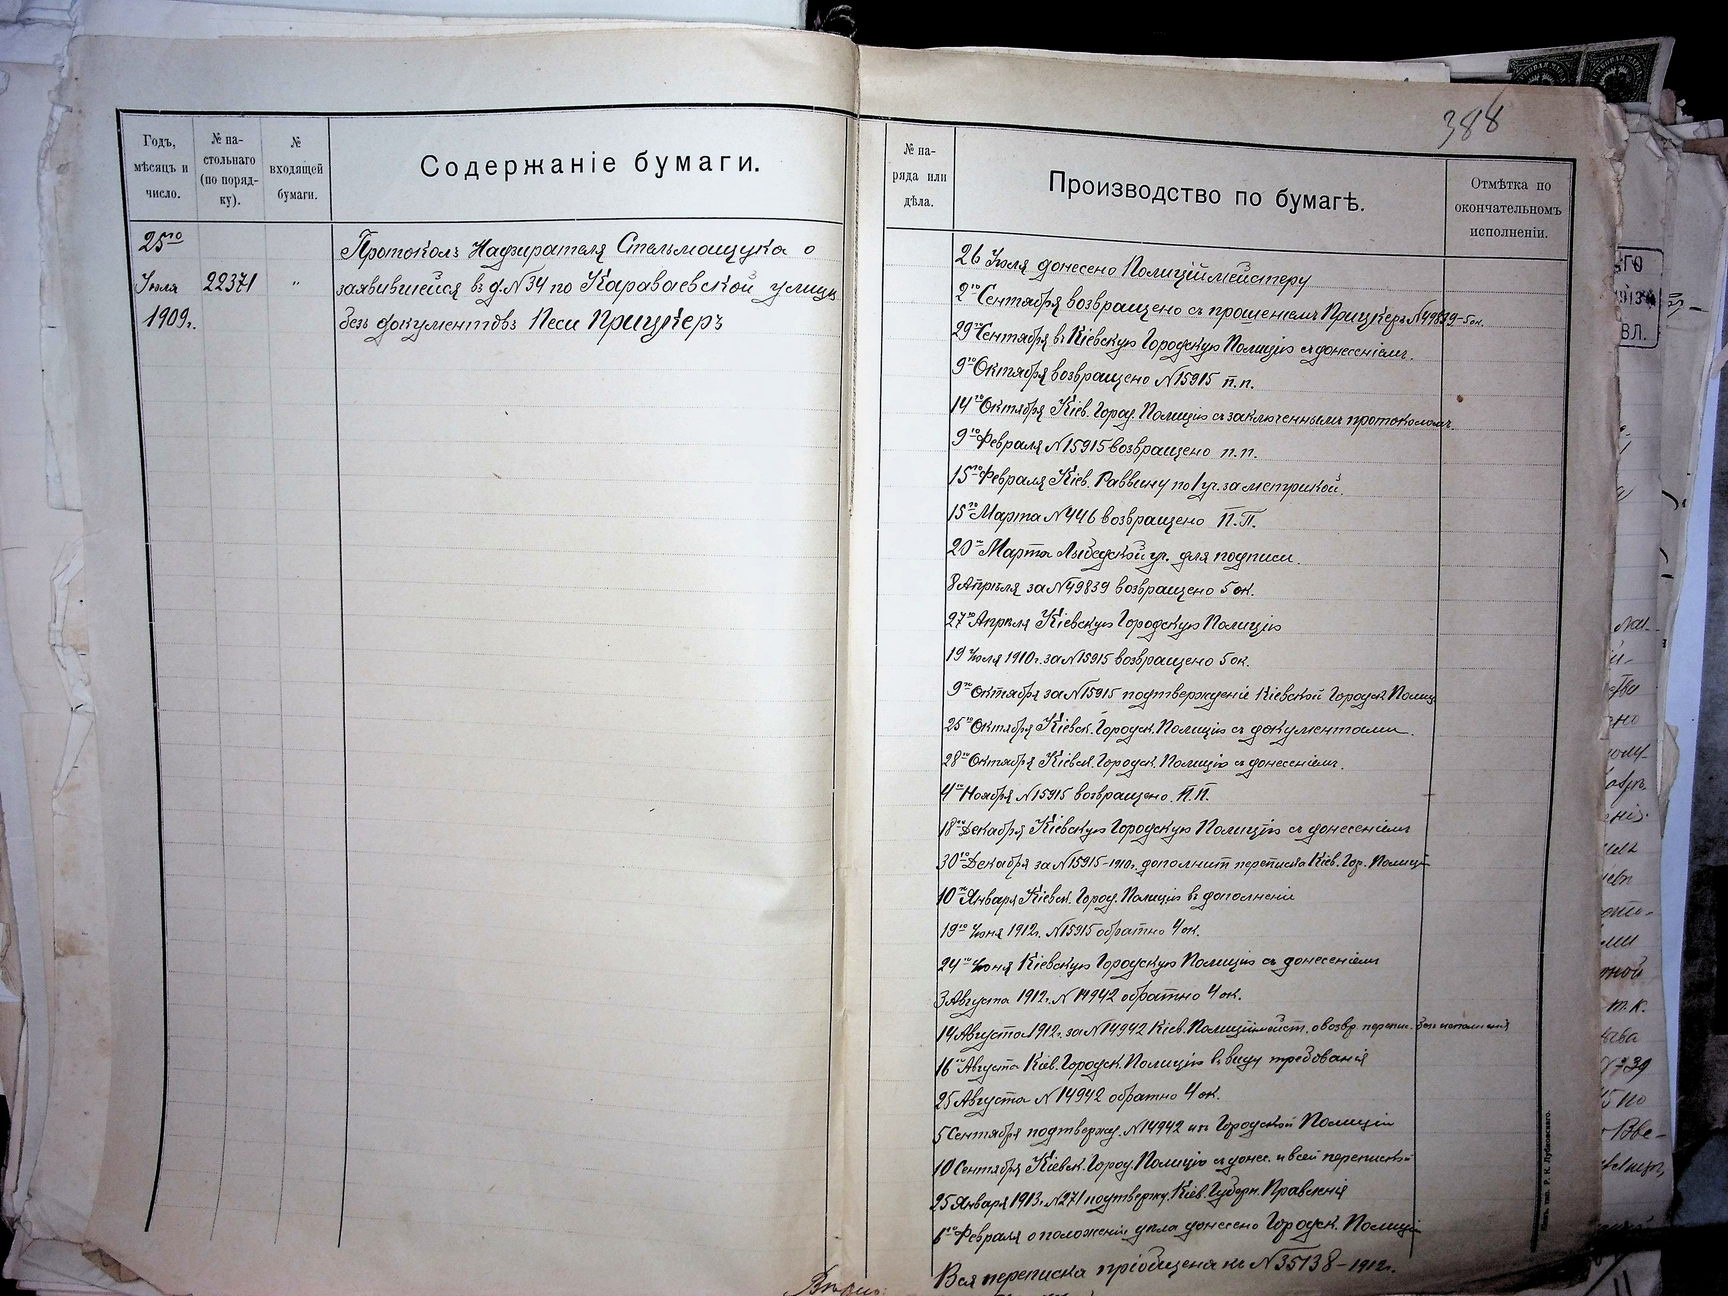 388
Годъ,
мѣсяцъ и
число.
№ на-
стольнаго
(по поряд-
ку).
№
входящей
бумаги.
Содержаніе бумаги.
25го
Іюля 22371 "
1909г.
Протоколъ Надзирателя Стельмащука о
заявившейся въ д. №34 по Караваевской улицѣ
безъ документовъ Песи Прицкеръ
№ на-
ряда или
дѣла.
Производство по бумагѣ.
Отмѣтка по
окончательномъ
исполненіи.
26 Іюля донесено Полиціймейстеру
2го Сентября возвращено съ прошеніемъ Прицкеръ №49839-5ок.
29го Сентября въ Кіевскую Городскую Полицію съ донесеніемъ.
9го Октября возвращено №15915 п.п.
14го Октября Кіев. Город. Полицію съ заключеннымъ протоколомъ.
9го Февраля №15915 возвращено п.п.
15го Февраля Кіев. Раввину по 1 уч. за метрикой.
15го Марта №446 возвращено П.П.
20го Марта Лыбедской уч. для подписи.
8 Апрѣля за №49839 возвращено 5 ок.
27го Апрѣля Кіевскую Городскую Полицію
19 Іюля 1910г. за №15915 возвращено 5 ок.
9го Октября за №15915 подтвержденіе Кіевской Городск. Полиц.
25го Октября Кіевск. Городск. Полицію съ документами.
28го Октября Кіевск. Городск. Полицію съ донесеніемъ.
4го Ноября №15915 возвращено П.П.
18го Декабря Кіевскую Городскую Полицію съ донесеніемъ
30го Декабря за №15915-1910г. дополнит переписка Кіев. Гор. Полиціи
10го Января Кіевск. Город. Полицію въ дополненіе
19го Іюня 1912г. №15915 обратно 4 ок.
24го Іюня Кіевскую Городскую Полицію съ донесеніемъ
3 Августа 1912г. №14942 обратно 4 ок.
14 Августа 1912г. за №14942 Кіев. Полиціймейст. о возвр. перепис. безъ исполненія
16го Августа Кіев. Городск. Полицію въ виду требованія
25 Августа №14942 обратно 4 ок.
5 Сентября подтвержд. №14942 изъ Городской Полиціи
10 Сентября Кіевск. Город. Полицію съ донес. и всей перепиской
25 Января 1913г. №271 подтвержд. Кіев. Губерн. Правленія
6го Февраля о положеніи дѣла донесено Городск. Полиціи
Вся переписка пріобщена къ №35138-1912г.